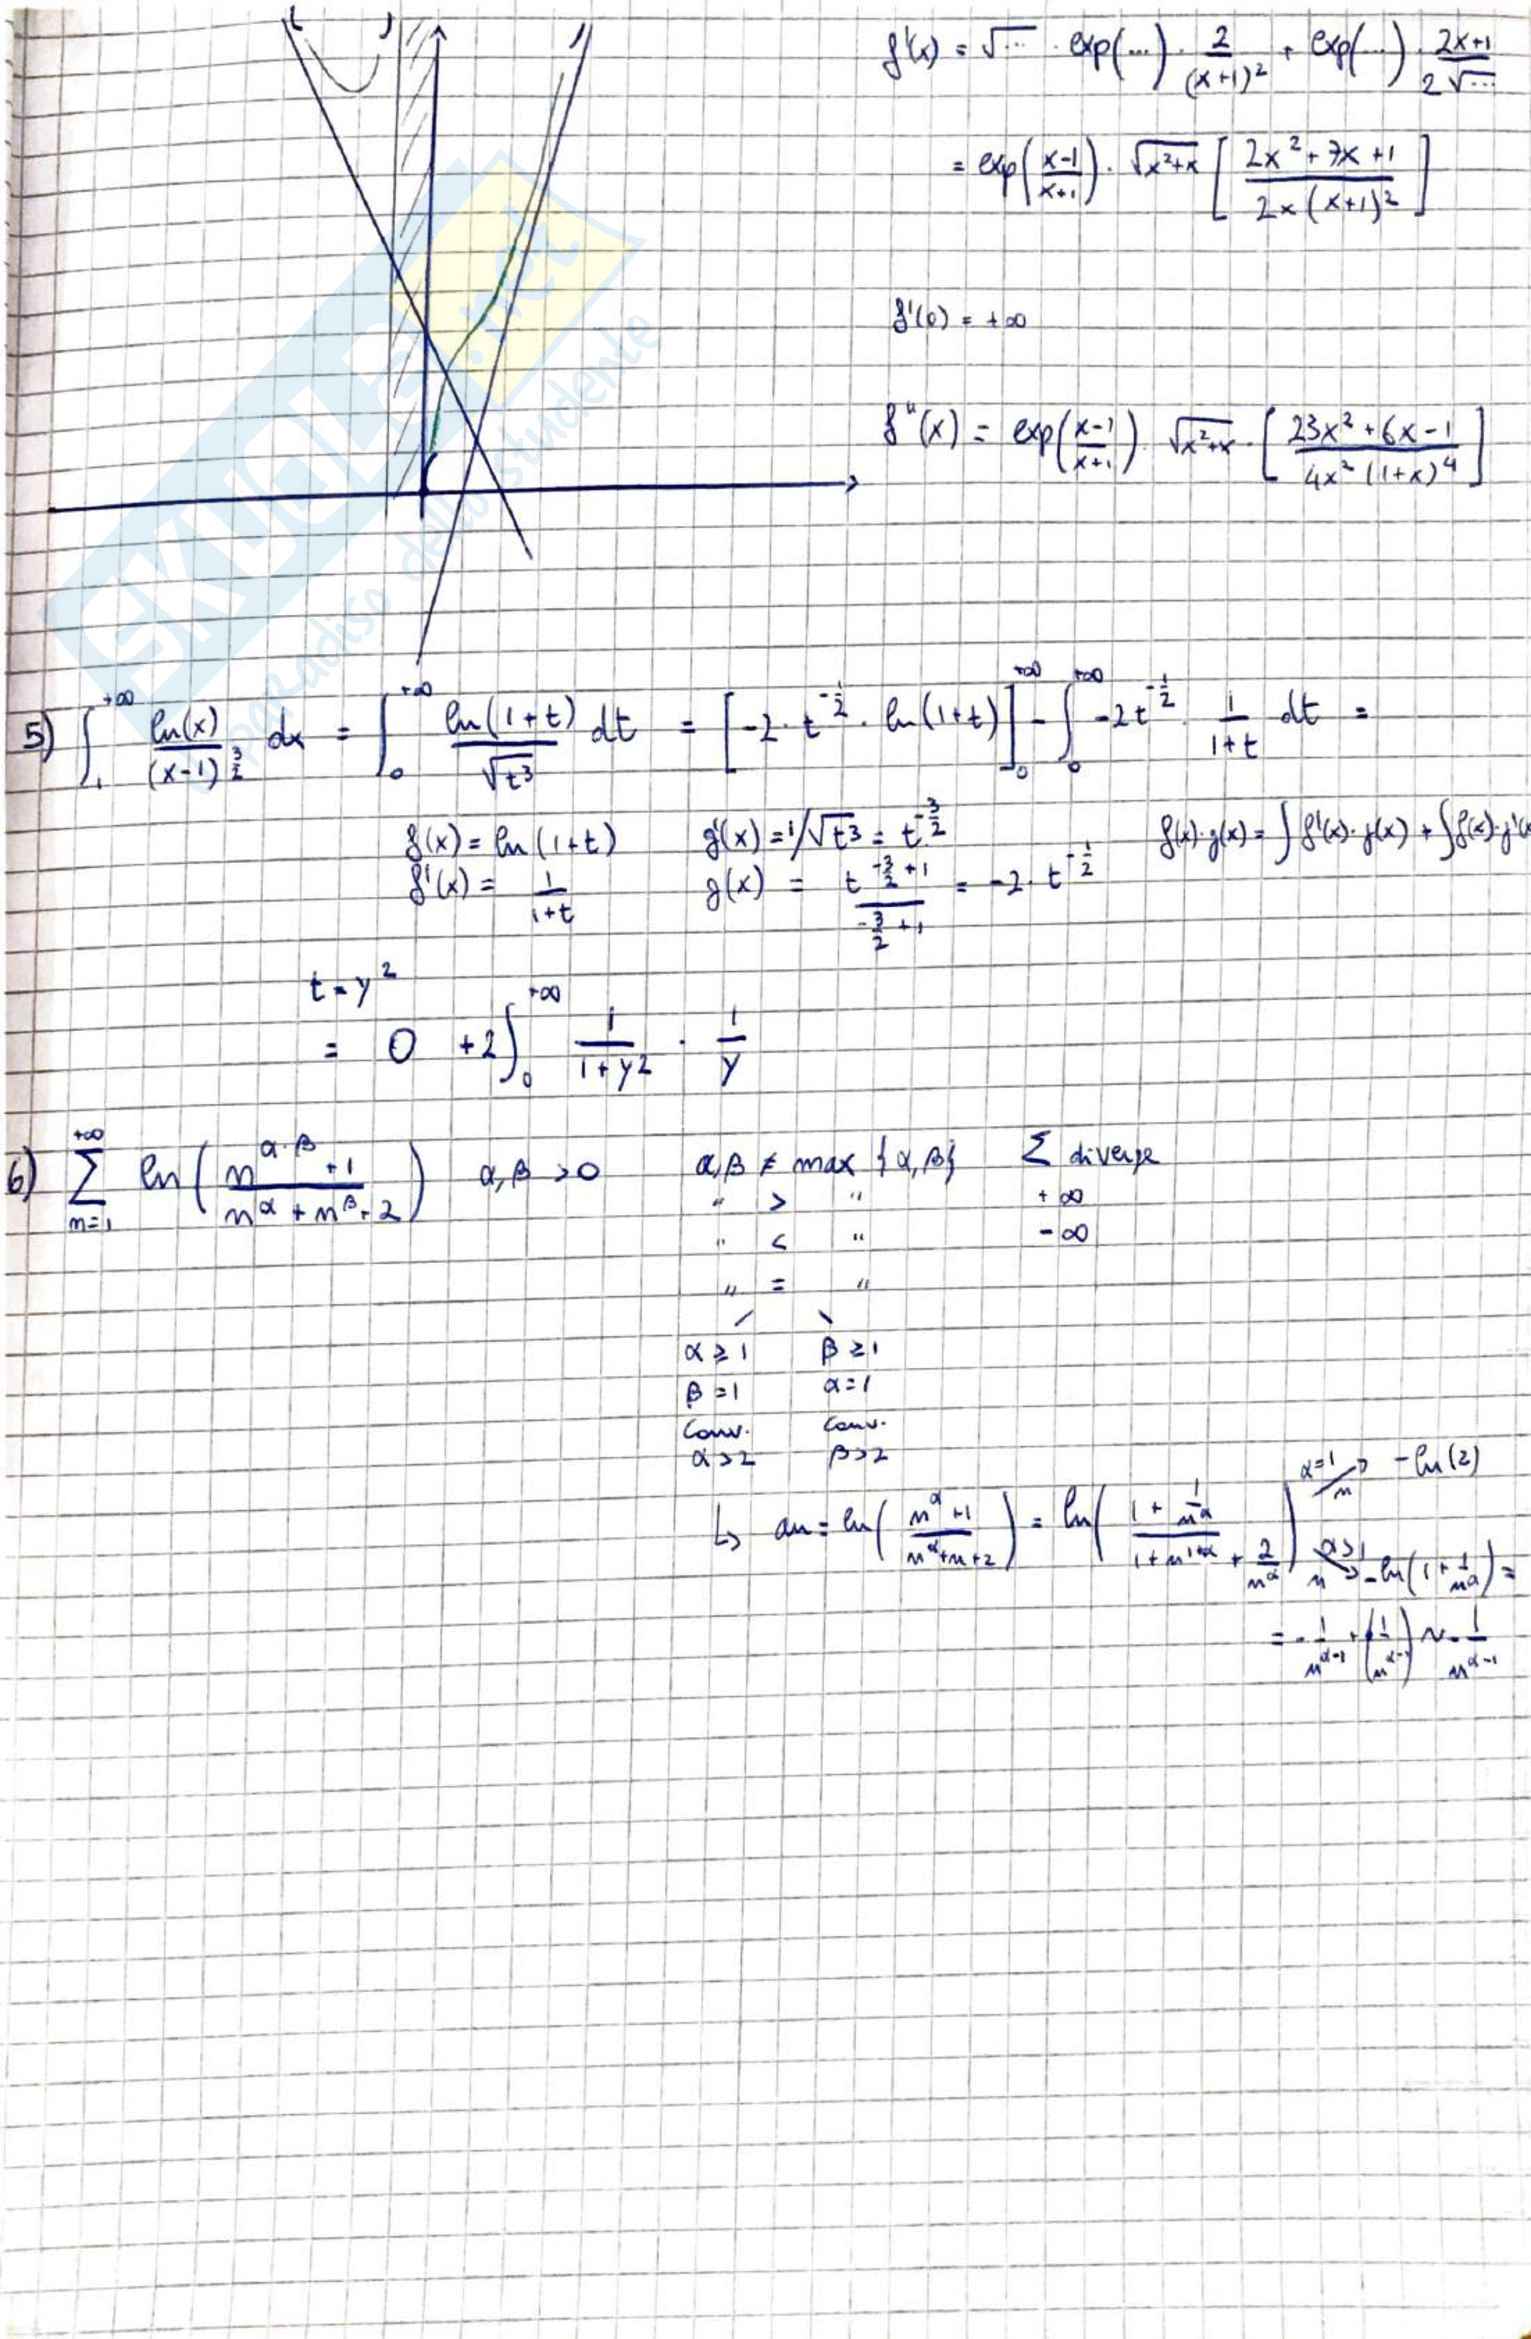 f'(x) = √... · exp(...) · 2/(x+1)² + exp(...) · 2x+1/2√...
= exp(x-1/x+1) · √x²+x [2x²+7x+1/2x(x+1)²]
f'(0) = +∞
f"(x) = exp(x-1/x+1) · √x²+x · [23x²+6x-1/4x²(1+x)⁴]
SKUOLA.net
paradiso dello studente
5) ∫₁^+∞ ln(x)/(x-1)^3/2 dx = ∫₀^+∞ ln(1+t)/√t³ dt = [-2 · t^-1/2 · ln(1+t)]₀^+∞ - ∫₀^+∞ -2t^-1/2 · 1/1+t dt =
f(x) = ln(1+t) g'(x) = 1/√t³ = t^-3/2 f(x)·g(x) = ∫f'(x)·g(x) + ∫f(x)·g'(x
f'(x) = 1/1+t g(x) = t^-3/2+1/-3/2+1 = -2 · t^-1/2
t = y²
= 0 +2∫₀^+∞ 1/1+y² · 1/y
6) Σ n=1 +∞ ln(n^α·β +1/n^α + n^β + 2) α,β >0 α,β ≠ max {α,β} Σ diverge
" > " +∞
" < " -∞
" = "
α ≥ 1 β ≥ 1
β = 1 α = 1
Conv. Conv.
α>2 β>2
α=1 → -ln(2)
↳ an = ln(n^α+1/n^α+n+2) = ln(1+1/n^α/1+n^1+α+2/n^α) α>1 → -ln(1+1/n^α) =
= -1/n^α-1 + (1/n^α-1) ~ -1/n^α-1